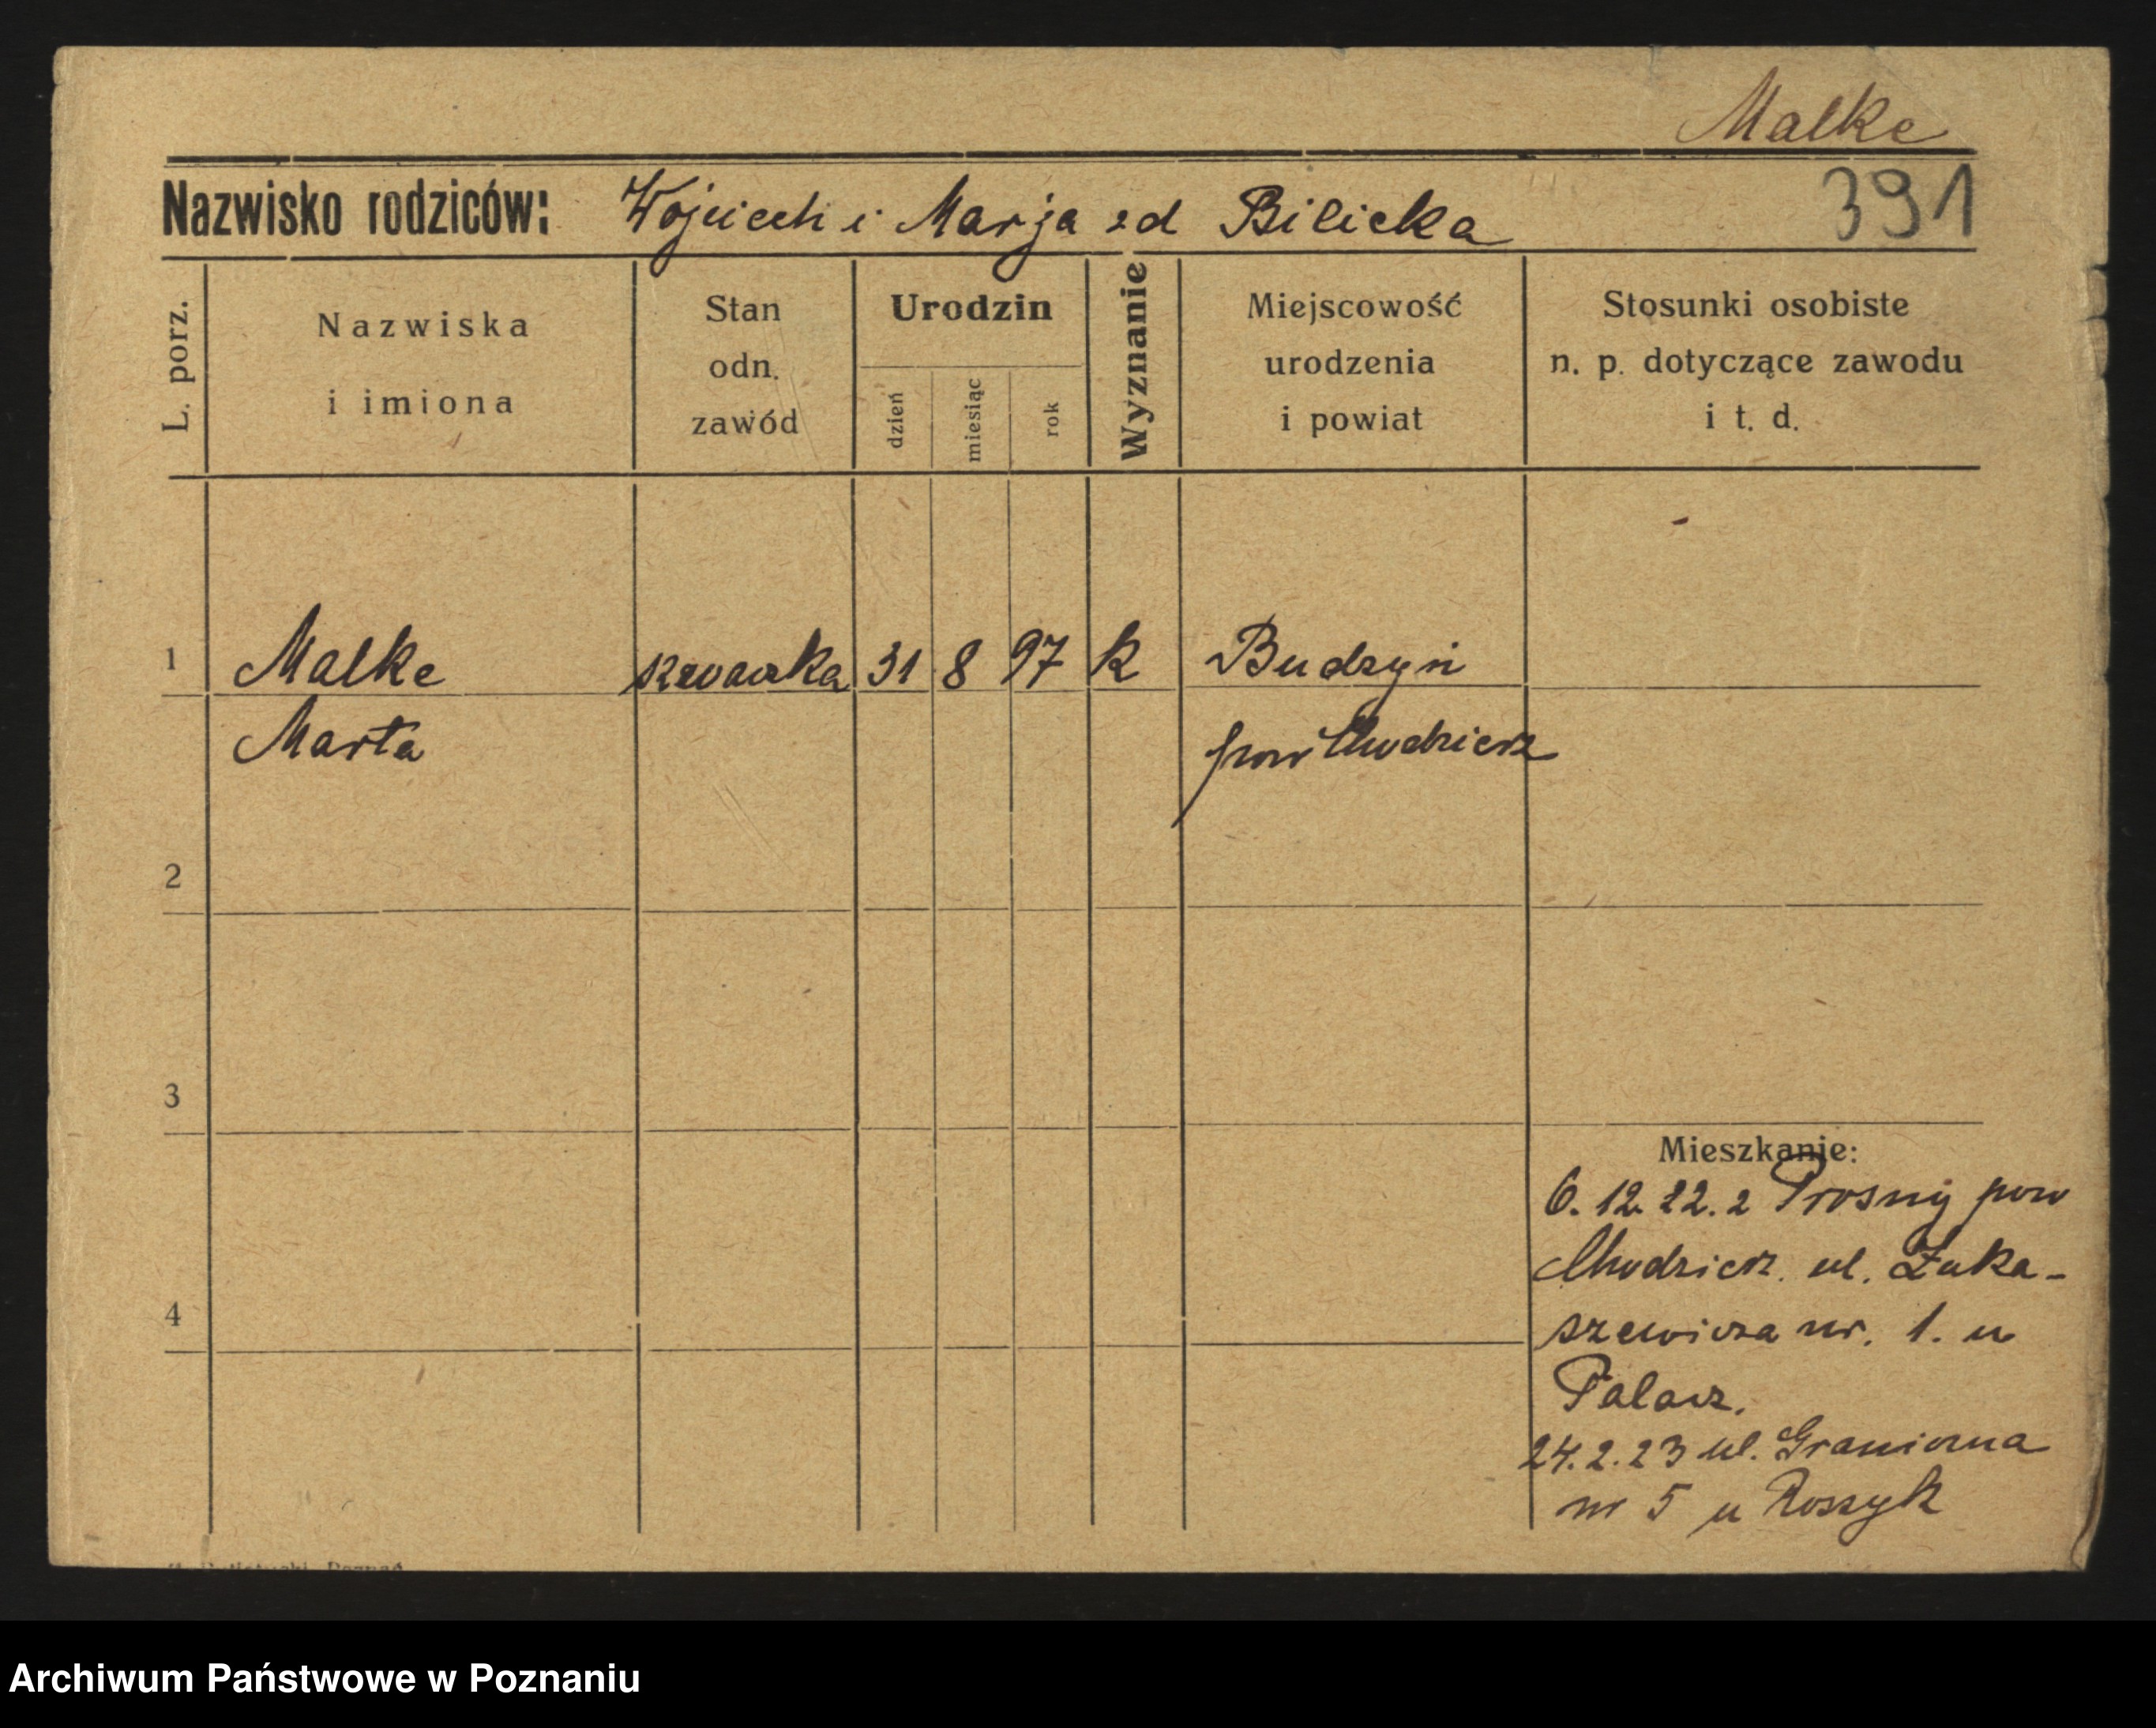 Malke
391
Nazwisko rodziców: Wojciech i Marja zd Bilicka
L. porz.
Nazwiska
i imiona
Stan
odn.
zawód
Urodzin
dzień
miesiąc
rok
Wyznanie
Miejscowość
urodzenia
i powiat
Stosunki osobiste
n. p. dotyczące zawodu
i t. d.
1 Malke szwaczka 31 8 97 k Budzyń
Marta pow Chodzież
2
3
4
Mieszkanie:
6. 12. 22. z Prosny pow
Chodzież. ul. Łuka-
szewicza nr. 1. u
Palacz.
24. 2. 23 ul. Graniczna
nr 5 u Roszyk
Poznań
Archiwum Państwowe w Poznaniu